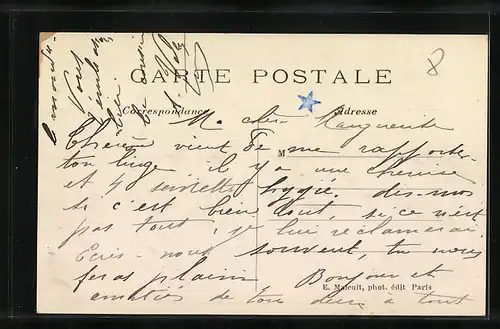 8
CARTE POSTALE
Correspondance
Adresse
Ma chère Marguerite
Thérèse vient de me rapporter
M
ton linge il y a une chemise
et 4 serviettes hygie. dis-moi
si c'est bien tout, si ce n'est
pas tout, je lui réclamerai.
Ecris-nous souvent, tu nous
feras plaisir Bonjour et
E. Malcuit, phot. édit Paris
amitiés de tous deux à tout
le monde.
Vous